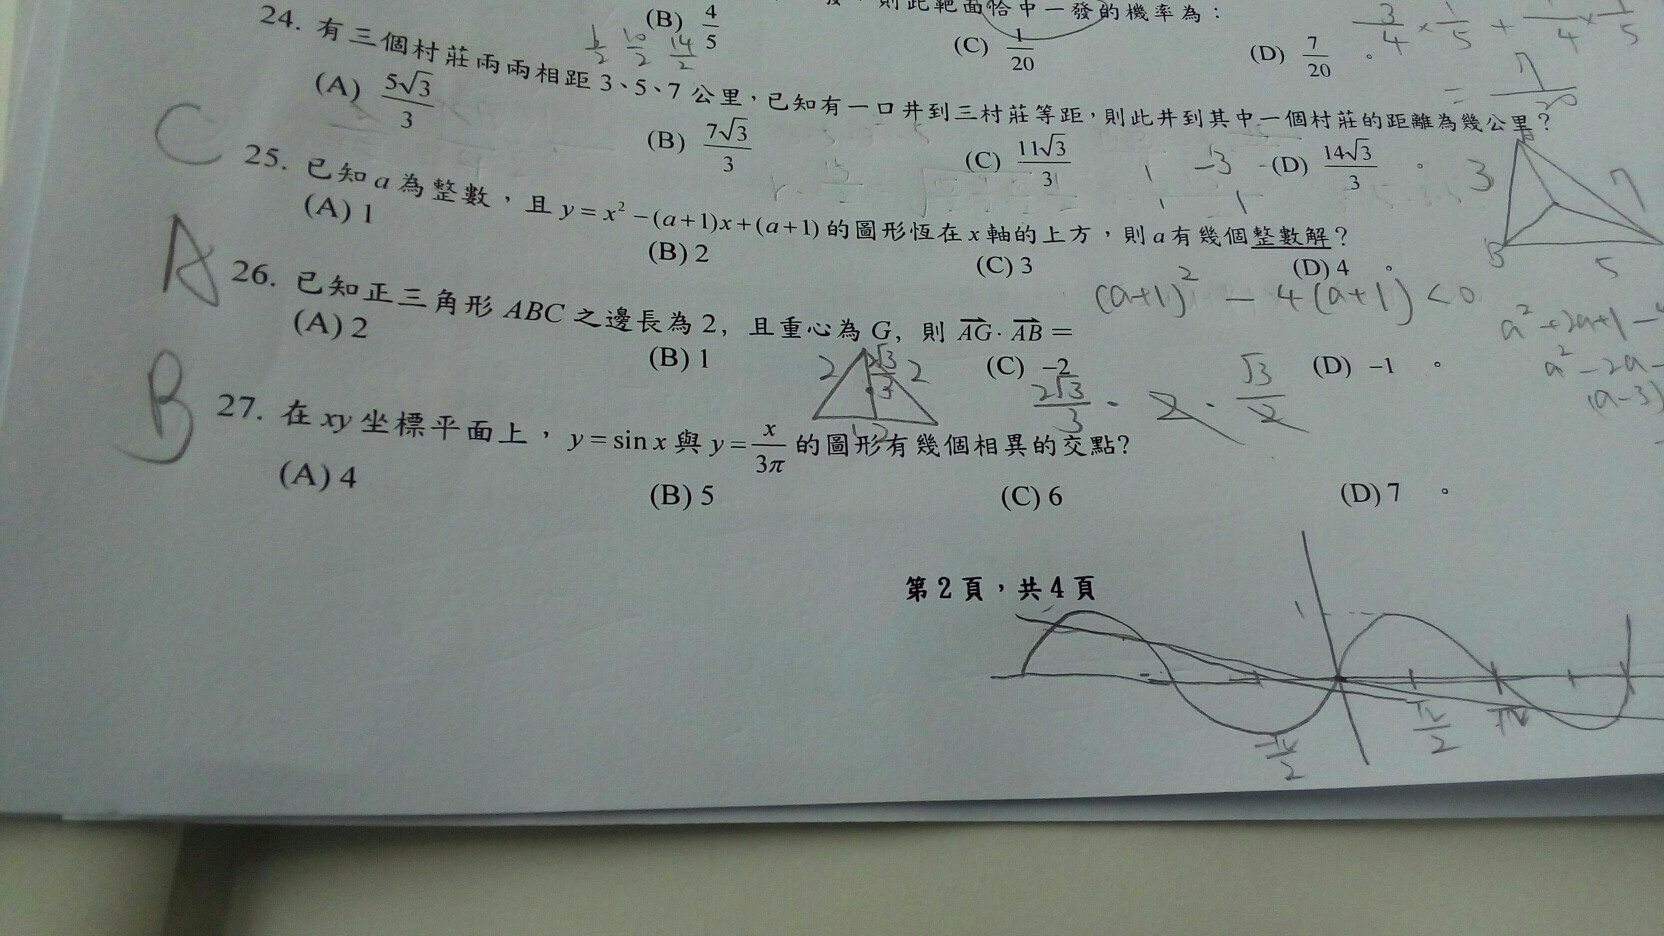 則此靶面恰中一發的機率為：
(B) 4/5
(C) 1/20
(D) 7/20 。
3/4 × 1/5 +
24. 有三個村莊兩兩相距 3、5、7 公里，已知有一口井到三村莊等距，則此井到其中一個村莊的距離為幾公里？
(A) 5√3/3
(B) 7√3/3
(C) 11√3/3
(D) 14√3/3 。
3
7
5
C
25. 已知 a 為整數，且 y = x² − (a+1)x + (a+1) 的圖形恆在 x 軸的上方，則 a 有幾個整數解？
(A) 1
(B) 2
(C) 3
(D) 4 。
(a+1)² − 4(a+1) < 0
A
26. 已知正三角形 ABC 之邊長為 2，且重心為 G，則 AG · AB =
(A) 2
(B) 1
(C) −2
(D) −1 。
2
2
2√3/3 · 2 · √3/2
B
27. 在 xy 坐標平面上，y = sin x 與 y = x/3π 的圖形有幾個相異的交點?
(A) 4
(B) 5
(C) 6
(D) 7 。
第 2 頁，共 4 頁
1
-π/2
π/2
π